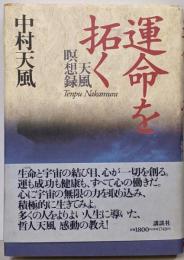 運命を
拓く
天風
瞑想録
Tenpu Nakamura
中村天風
生命と宇宙の結び目、心が一切を創る。
運も成功も健康も、すべて心の働きだ。
心に宇宙の無限の力を取り込み、
積極的に生きてみよ。
多くの人をよりよい人生に導いた、
哲人天風 感動の教え!
講談社
定価1800円